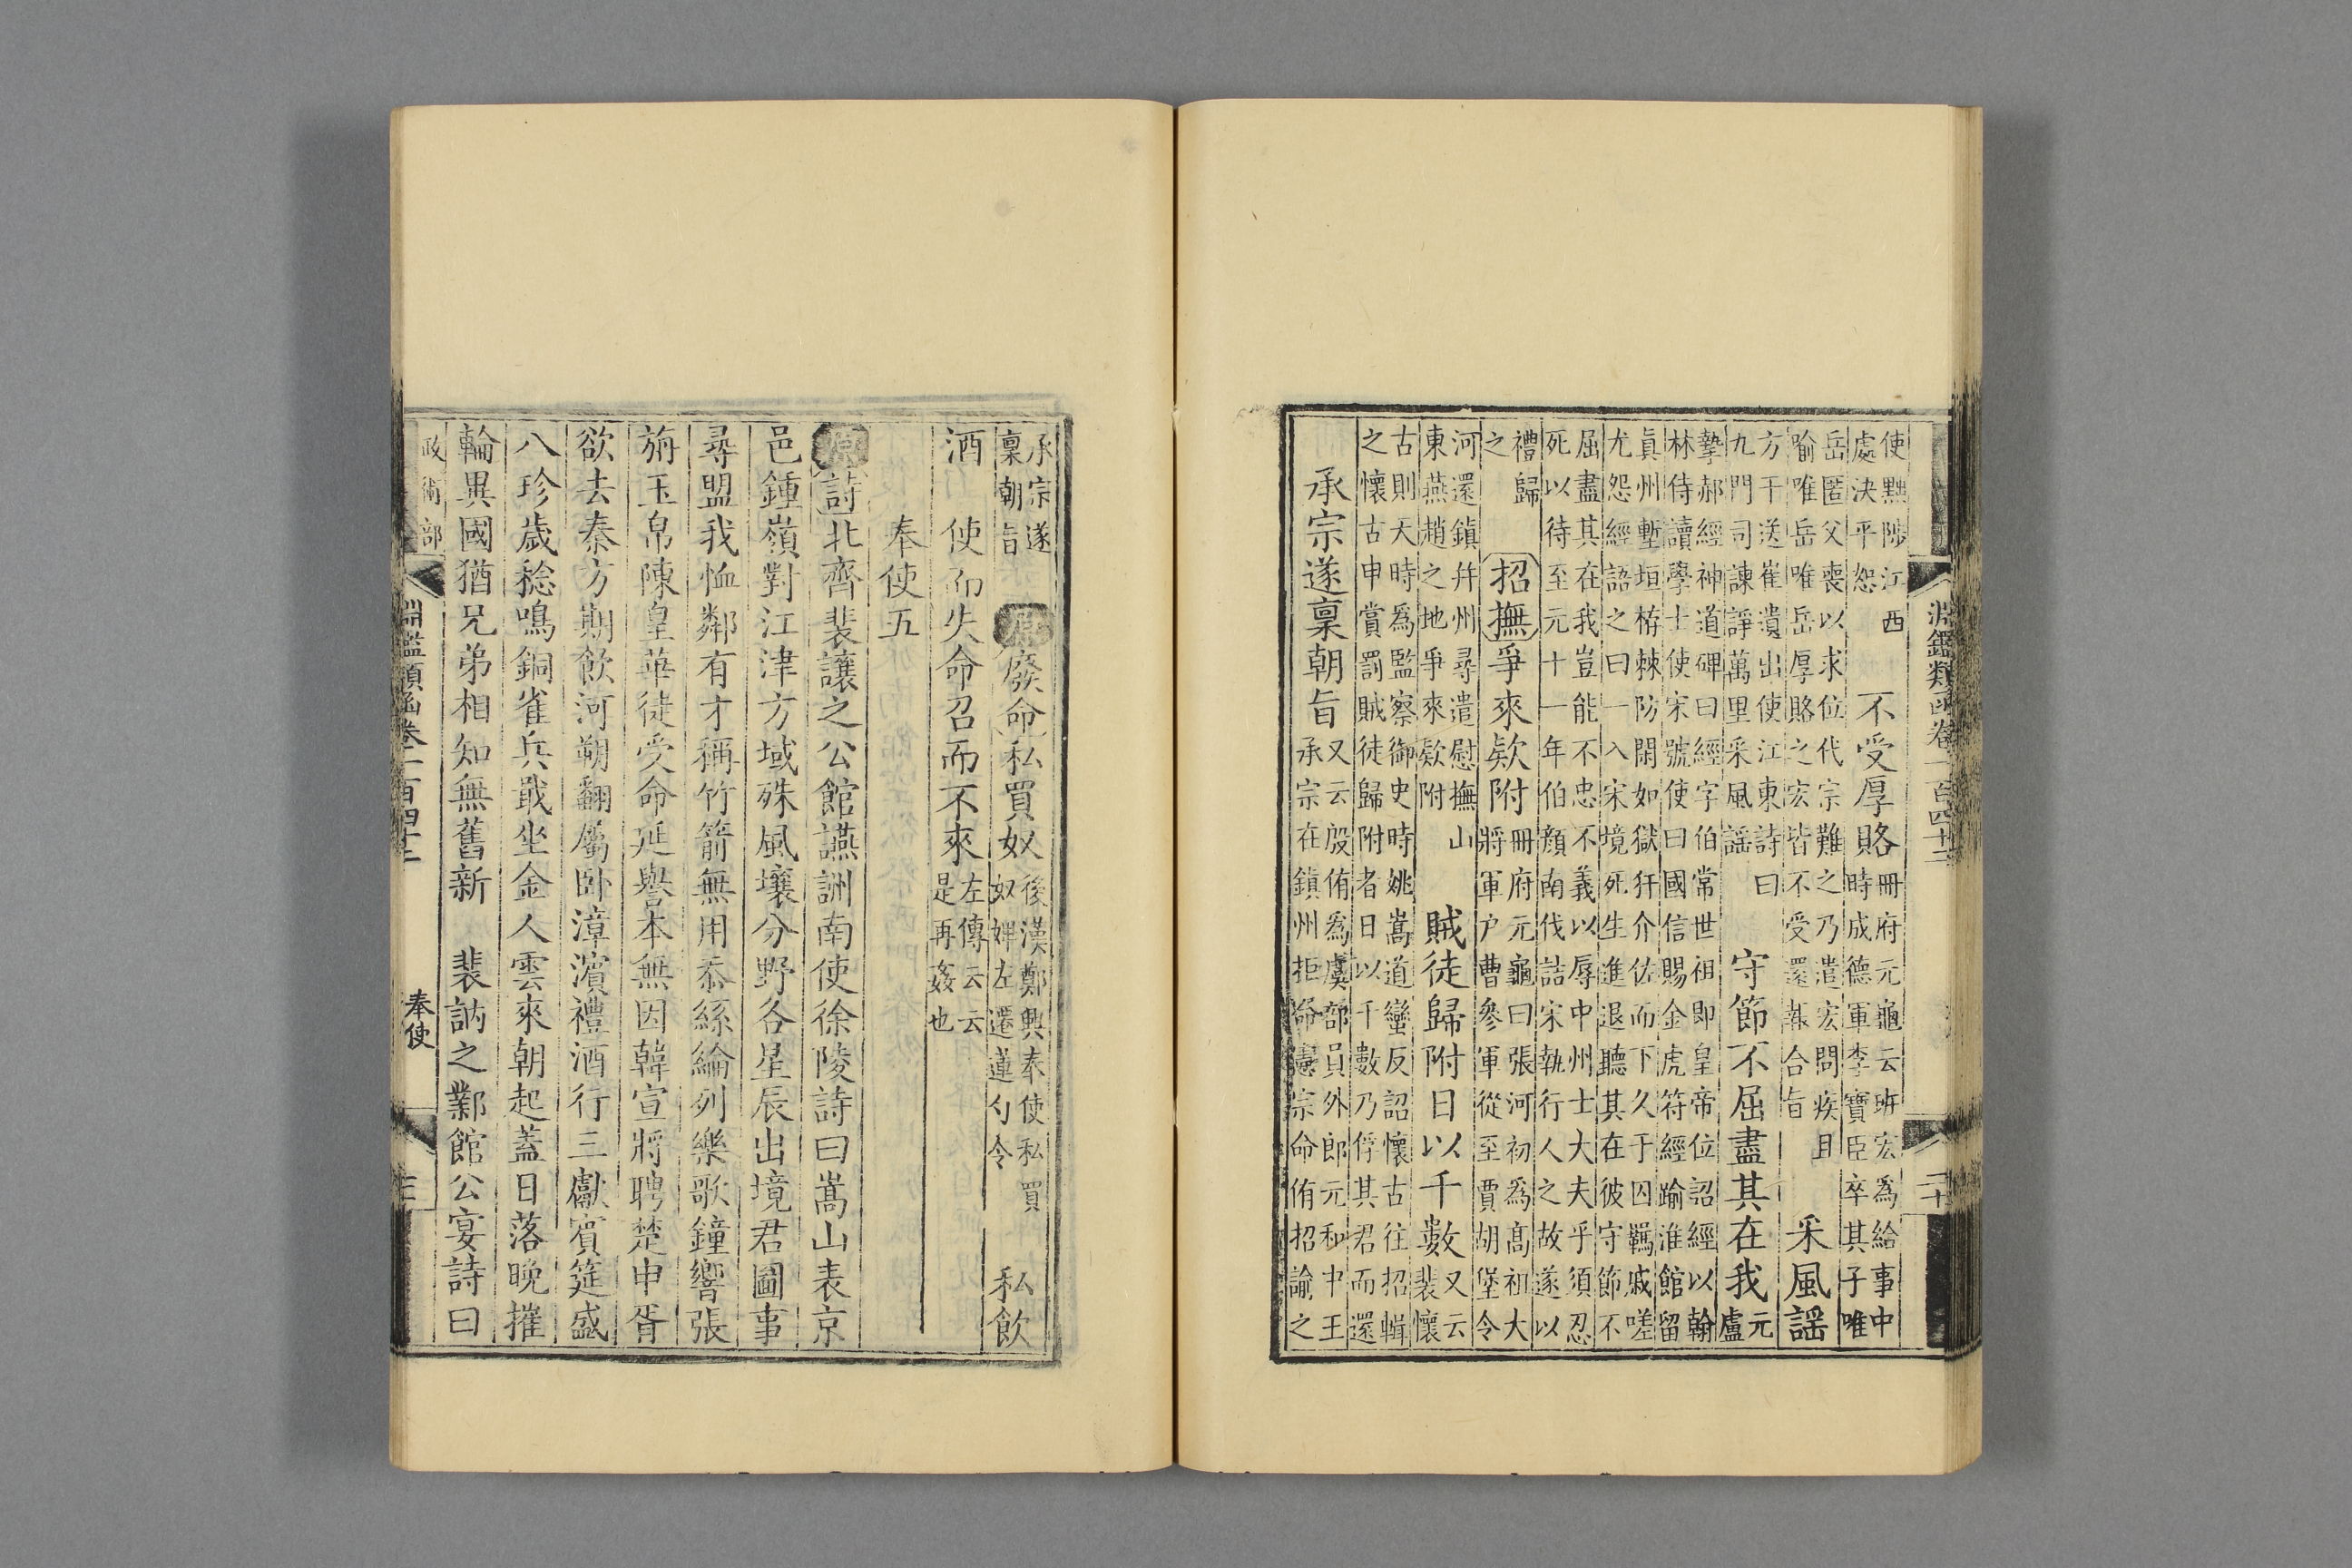 淵鑑類函卷一百四十二 二十
使黜陟江西處決平恕 不受厚賂 冊府元龜云班宏爲給事中時成德軍李寶臣卒其子唯
岳匿父喪以求位代宗難之乃遣宏問疾且喻唯岳唯岳厚賂之宏皆不受還報合旨 采風謡
方干送崔遺出使江東詩曰九門司諫諍萬里采風謡 守節不屈盡其在我 元盧
摯郝經神道碑曰經字伯常世祖即皇帝位詔經以翰林侍讀學士使宋號使曰國信賜金虎符經踰淮館留
眞州塹垣栫棘防閑如獄犴介佐而下久于囚羈戚嗟尤怨經語之曰一入宋境死生進退聽其在彼守節不
屈盡其在我豈能不忠不義以辱中州士大夫乎須忍死以待至元十一年伯顏南伐詰宋執行人之故遂以
禮歸之 招撫爭來欵附 冊府元龜曰張河初爲高祖大將軍户曹參軍從至賈胡堡令
河還鎮幷州尋遣慰撫山東燕趙之地爭來欵附 賊徒歸附日以千數 又云裴懷
古則天時爲監察御史時姚嶲道蠻反詔懷古往招輯之懷古申賞罰賊徒歸附者日以千數乃俘其君而還
承宗遂稟朝旨 又云殷侑爲虞部員外郎元和中王承宗在鎮州拒命憲宗命侑招諭之
承宗遂稟朝旨 原廢命私買奴 後漢鄭興奉使私買奴婢左遷蓮勺令 私飲
酒 使而失命召而不來 左傳云云是再姦也
奉使五
原詩北齊裴讓之公館讌詶南使徐陵詩曰嵩山表京
邑鍾嶺對江津方域殊風壤分野各星辰出境君圖事
尋盟我恤鄰有才稱竹箭無用忝絲綸列樂歌鐘響張
旃玉帛陳皇華徒受命延譽本無因韓宣將聘楚申胥
欲去秦方期飲河朔翻屬卧漳濱禮酒行三獻賓筵盛
八珍歲稔鳴銅雀兵戢坐金人雲來朝起蓋日落晚摧
輪異國猶兄弟相知無舊新 裴訥之鄴館公宴詩曰
政術部 淵鑑類函卷一百四十二 奉使